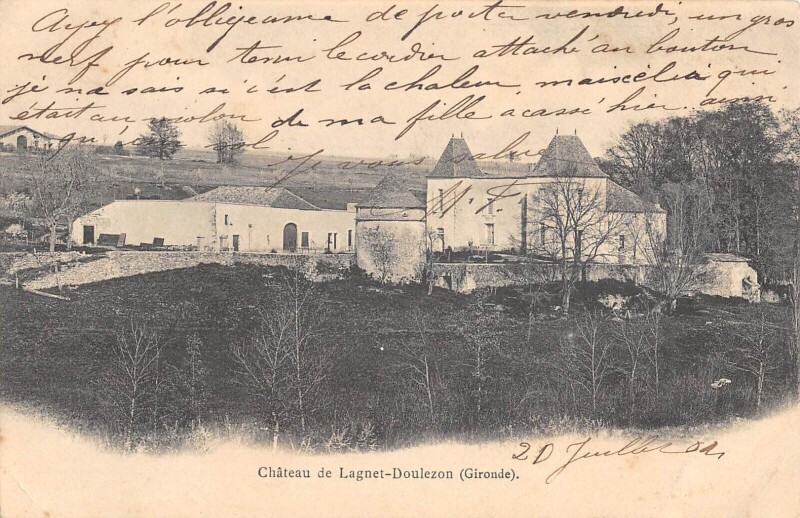 Ayez l'obligeance de porter vendredi, un gros
nerf pour tenir le cordier attaché au bouton
je ne sais si c'est la chaleur, mais celui qui
était au violon de ma fille a cassé hier. ainsi
qu'
sol
Je vous salue
20 Juillet 04
Château de Lagnet-Doulezon (Gironde).